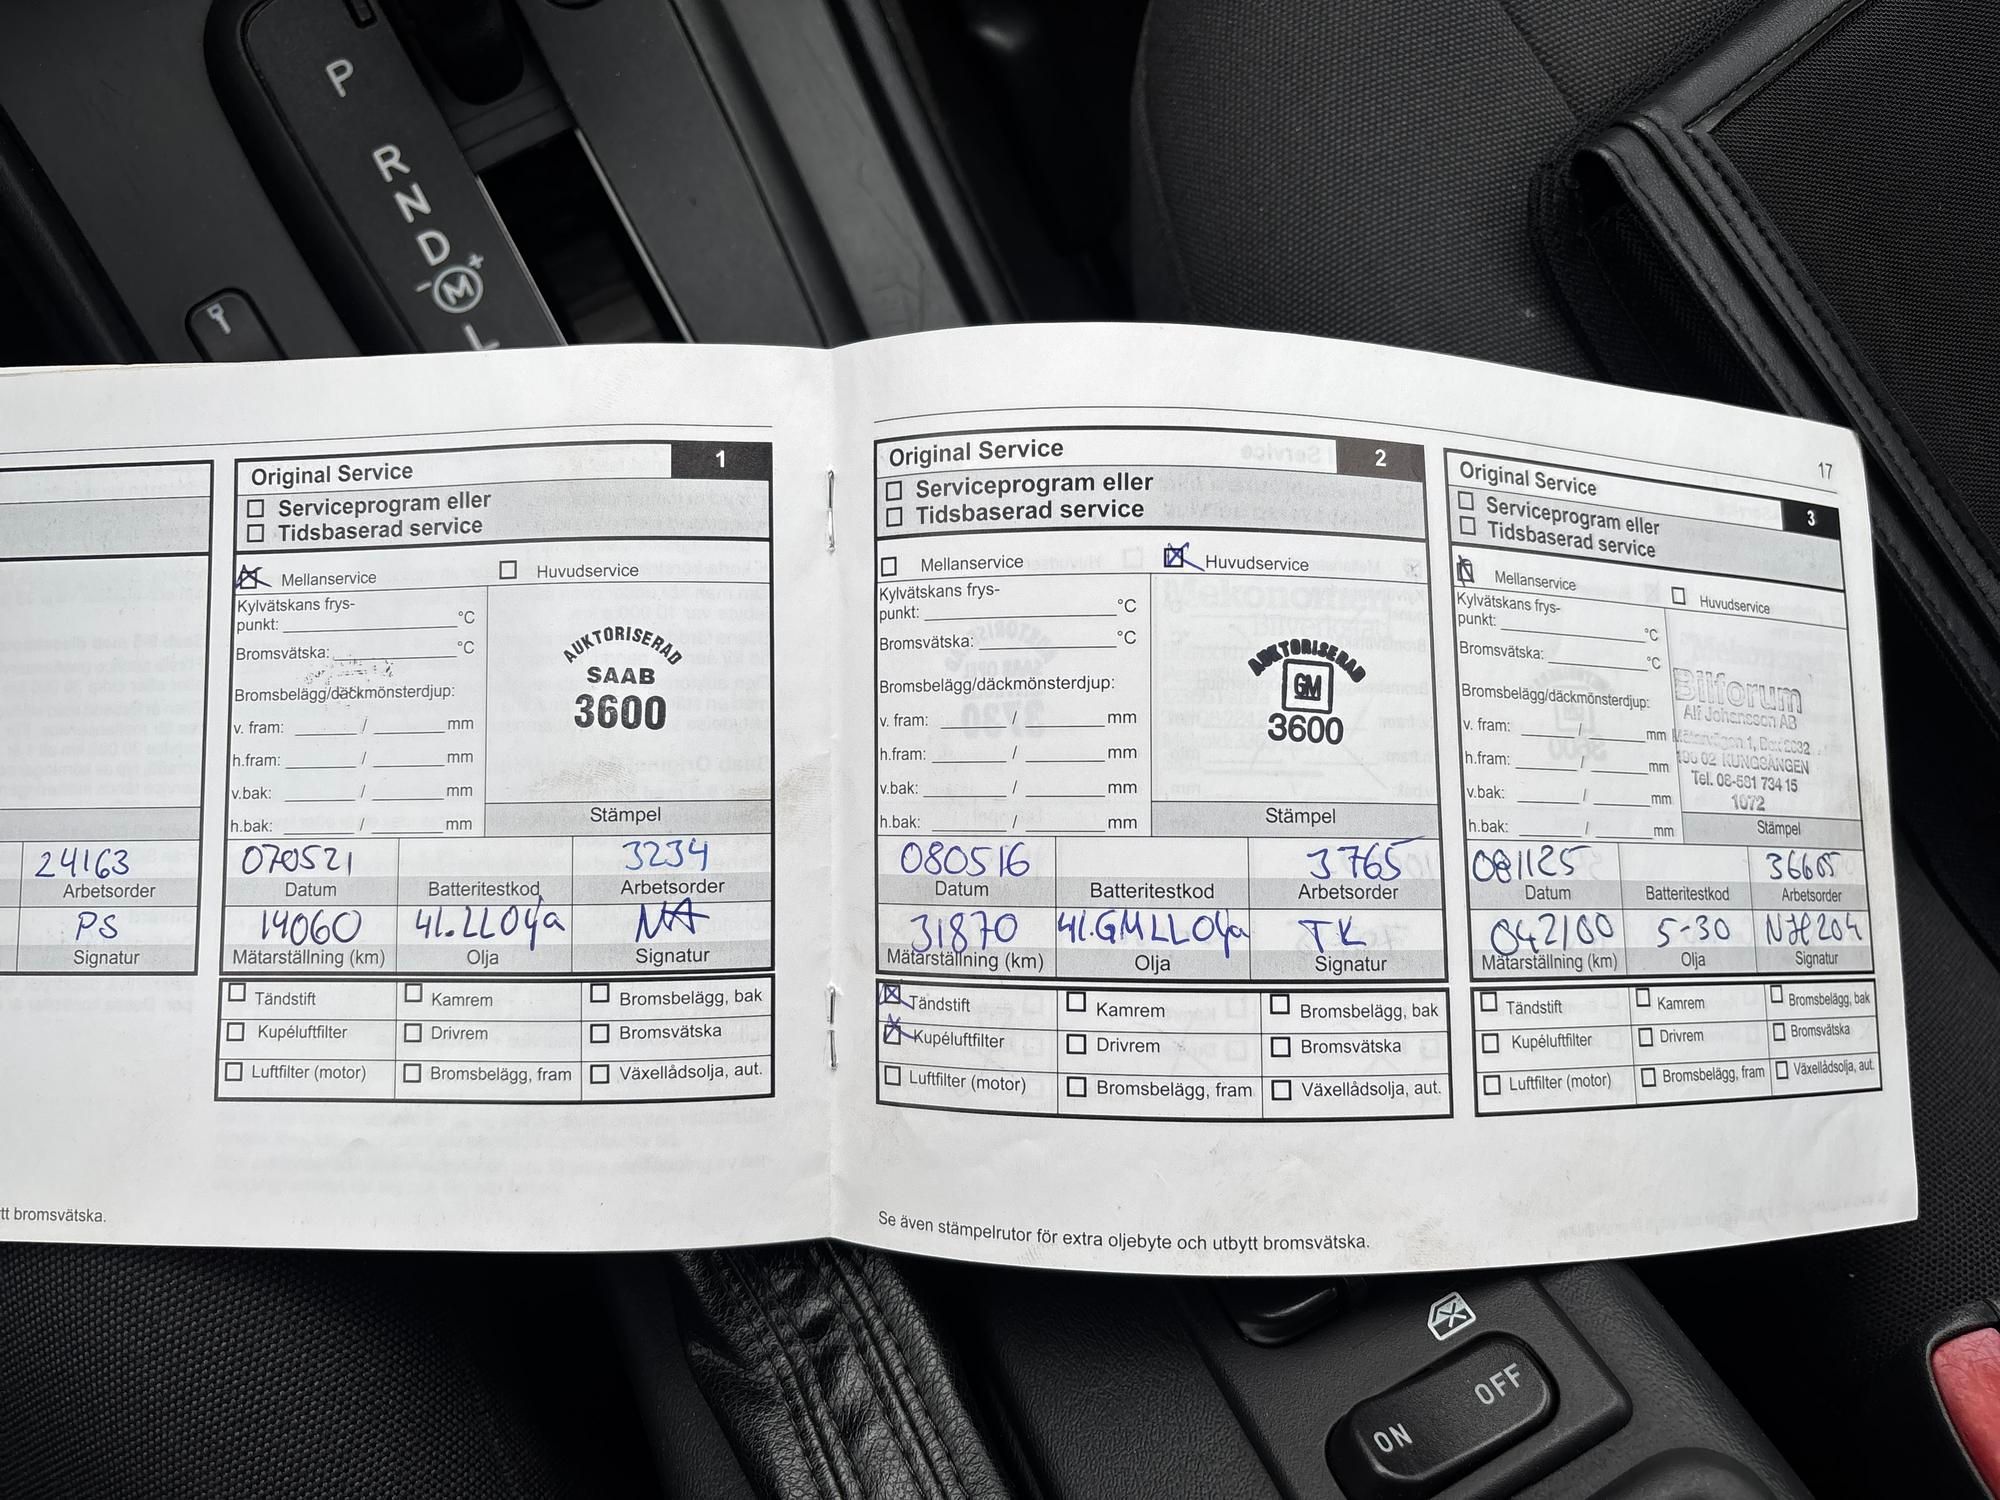 P
R
N
D
+
- M
L
24163
Arbetsorder
PS
Signatur
tt bromsvätska.
Original Service 1
Serviceprogram eller
Tidsbaserad service
Mellanservice Huvudservice
Kylvätskans frys-
punkt: °C
Bromsvätska: °C
Bromsbelägg/däckmönsterdjup:
v. fram: / mm
h.fram: / mm
v.bak: / mm
h.bak: / mm
AUKTORISERAD
SAAB
3600
Stämpel
070521 3234
Datum Batteritestkod Arbetsorder
14060 4l.LLOlja NA
Mätarställning (km) Olja Signatur
Tändstift Kamrem Bromsbelägg, bak
Kupéluftfilter Drivrem Bromsvätska
Luftfilter (motor) Bromsbelägg, fram Växellådsolja, aut.
Original Service 2
Serviceprogram eller
Tidsbaserad service
Mellanservice Huvudservice
Kylvätskans frys-
punkt: °C
Bromsvätska: °C
Bromsbelägg/däckmönsterdjup:
v. fram: / mm
h.fram: / mm
v.bak: / mm
h.bak: / mm
AUKTORISERAD
GM
3600
Stämpel
080516 3765
Datum Batteritestkod Arbetsorder
31870 4l.GMLLOlja TK
Mätarställning (km) Olja Signatur
Tändstift Kamrem Bromsbelägg, bak
Kupéluftfilter Drivrem Bromsvätska
Luftfilter (motor) Bromsbelägg, fram Växellådsolja, aut.
Se även stämpelrutor för extra oljebyte och utbytt bromsvätska.
17
Original Service 3
Serviceprogram eller
Tidsbaserad service
Mellanservice Huvudservice
Kylvätskans frys-
punkt: °C
Bromsvätska: °C
Bromsbelägg/däckmönsterdjup:
v. fram: / mm
h.fram: / mm
v.bak: / mm
h.bak: / mm
Bilforum
Alf Johansson AB
1, Box
196 02 KUNGSÄNGEN
Tel. 08-581 734 15
1072
Stämpel
081125 36605
Datum Batteritestkod Arbetsorder
042100 5-30
Mätarställning (km) Olja Signatur
Tändstift Kamrem Bromsbelägg, bak
Kupéluftfilter Drivrem Bromsvätska
Luftfilter (motor) Bromsbelägg, fram Växellådsolja, aut.
ON OFF